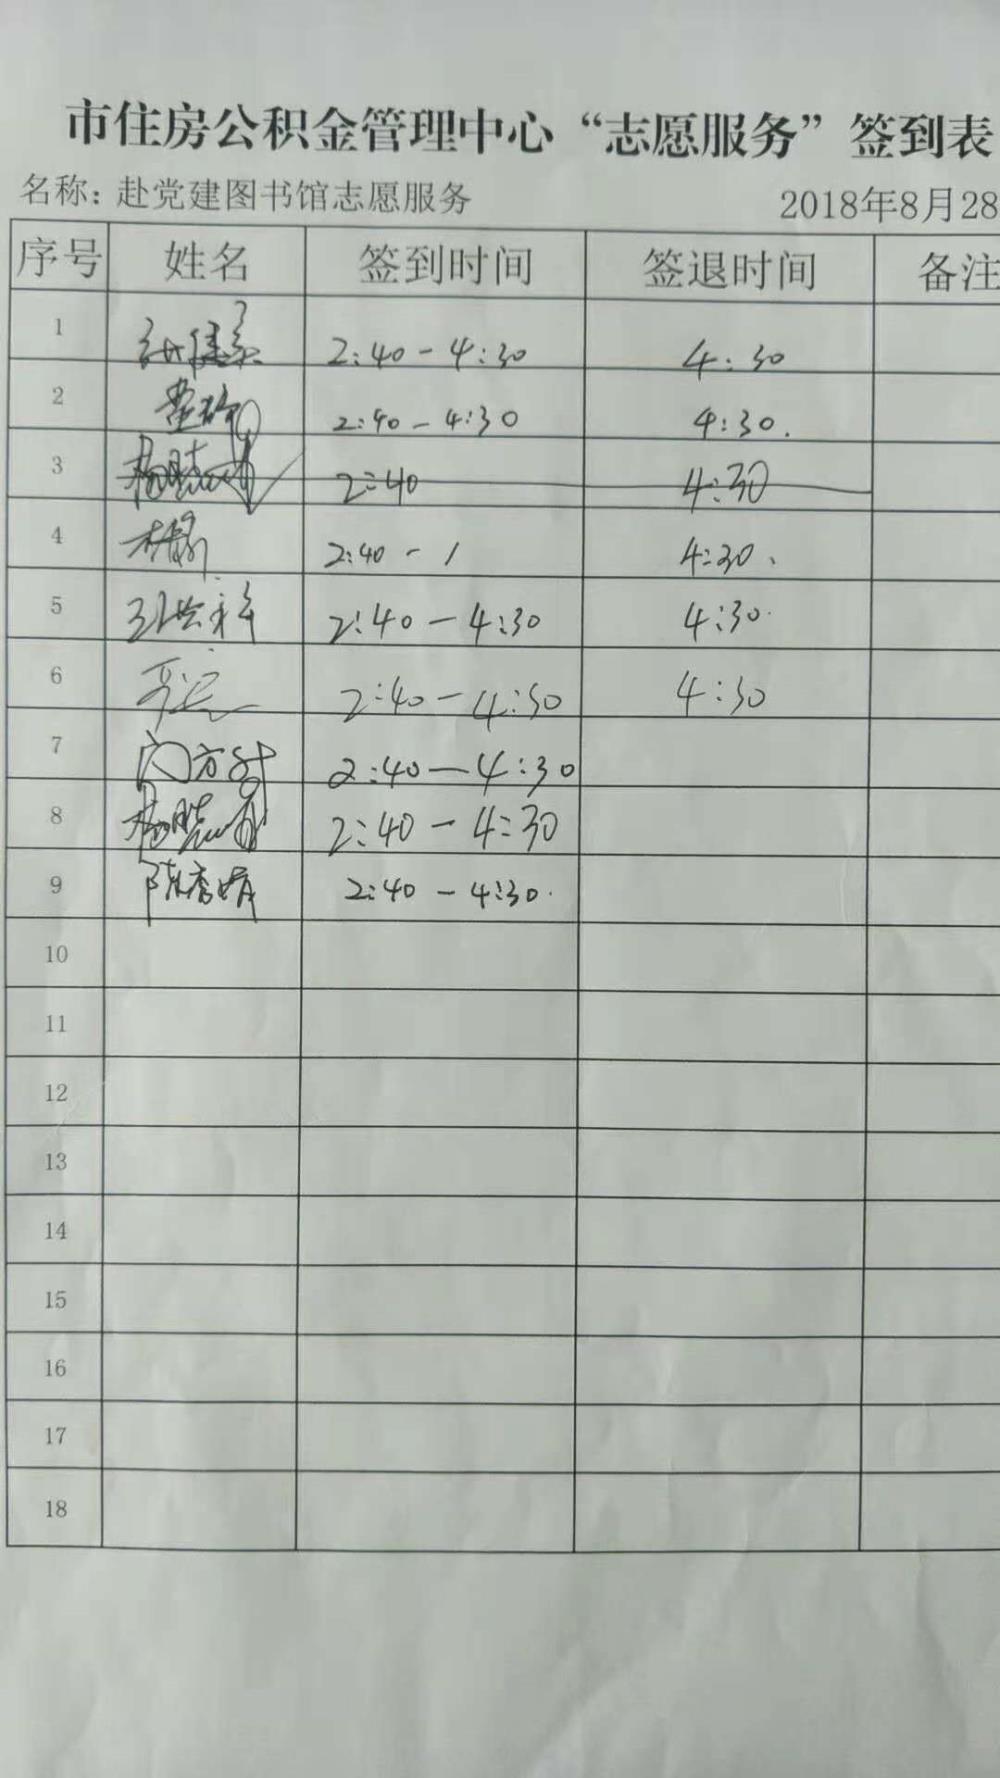 市住房公积金管理中心“志愿服务”签到表
名称：赴党建图书馆志愿服务 2018年8月28
序号 姓名 签到时间 签退时间 备注
1 2:40-4:30 4:30
2 2:40-4:30 4:30.
3 2:40 4:30
4 2:40- 4:30.
5 2:40-4:30 4:30.
6 2:40-4:30 4:30
7 2:40-4:30
8 2:40-4:30
9 陈秀娟 2:40-4:30.
10
11
12
13
14
15
16
17
18